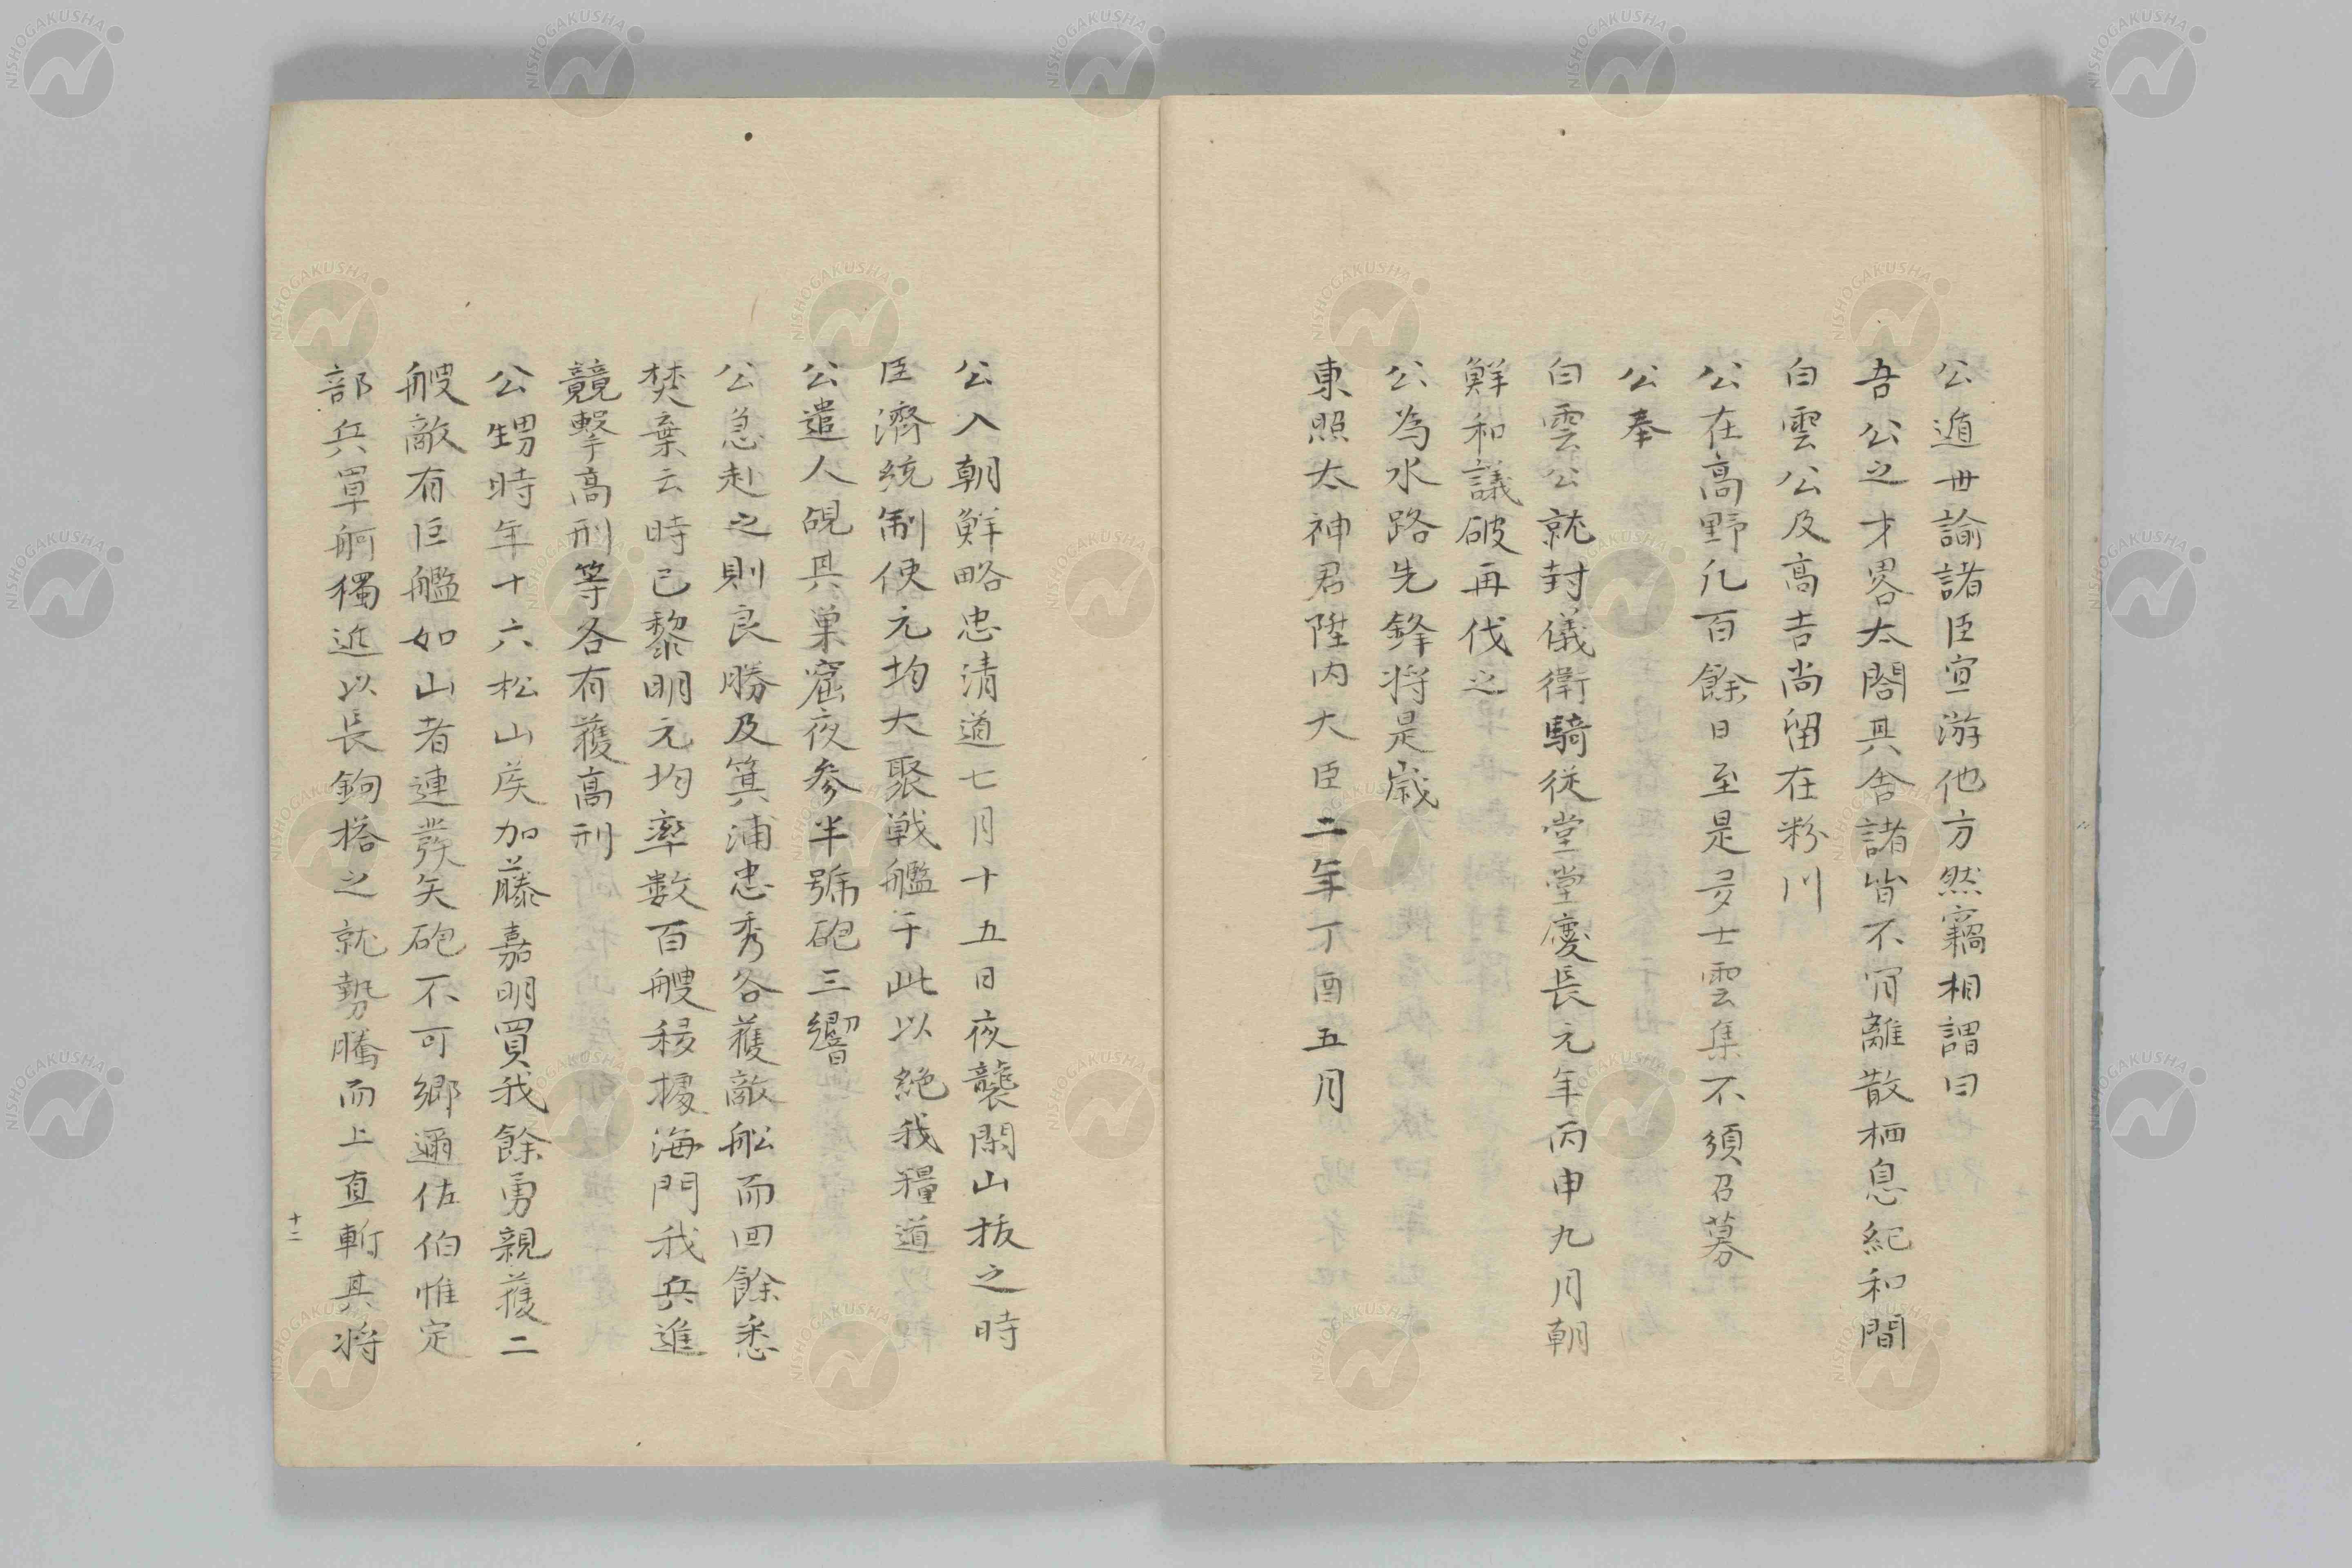 公遁世諭諸臣宜游他方然竊相謂曰
吾公之才畧太閤其舍諸皆不肯離散栖息紀和間
白雲公及高吉尚留在粉川
公在高野凡百餘日至是多士雲集不須召募
公奉
白雲公就封儀衛騎従堂堂慶長元年丙申九月朝
鮮和議破再伐之
公為水路先鋒将是歳
東照太神君陞内大臣二年丁酉五月
公入朝鮮略忠清道七月十五日夜襲閑山抜之時
臣濟統制使元均大聚戦艦于此以絶我糧道
公遣人覘其巣窟夜参半號砲三響
公急赴之則良勝及箕浦忠秀各獲敵舩而回餘悉
焚棄云時已黎明元均率数百艘移據海門我兵進
競撃高刑等各有獲高刑
公甥時年十六松山侯加藤嘉明買我餘勇親獲二
艘敵有巨艦如山者連發矢砲不可郷邇佐伯惟定
部兵單舸獨近以長鉤搭之就勢騰而上直斬其将
十二
NISHOGAKUSHA